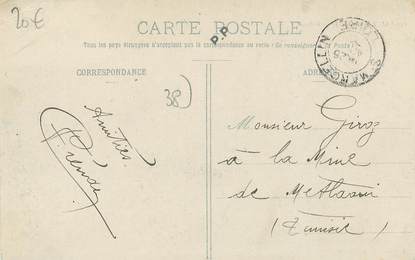 20€
CARTE POSTALE
Tous les pays étrangers n'acceptent pas la correspondance au verso
P.P.
MARCELLIN
ISÈRE
CORRESPONDANCE
ADRE
38
Amitiés
Monsieur
à la Mine
de Metlaoui
(Tunisie)